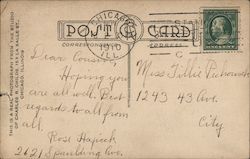 THIS IS A REAL PHOTOGRAPH FROM THE STUDIO
OF CHARLES R. CHILDS, 151 E. LA SALLE ST.
CHICAGO, ILLINOIS
POST CARD
CORRESPONDENCE
CHICAGO
1910
ILL.
Dear Cousin:
Hoping you
are all well. Best
regards to all from
all.
Rose Hajicek
2621 Spaulding Ave.
Miss Tillie
1243 43 Ave.
City